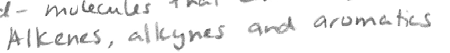 - molecules
Alkenes, alkynes and aromatics